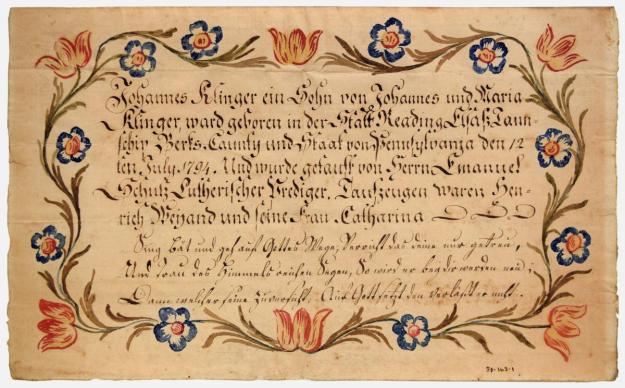 Johannes Klinger ein Sohn von Johannes und Maria
Klinger, ward geboren in der Statt Reading Elsaß Taun-
schip Berks. Caunty und Staat von Pennsylvanza den 12
ten July. 1794. Und wurde getauft von Herrn Emanuel
Schulz Lutherischer Prediger. Taufzeugen waren Hen-
rich Weyand und seine Frau Catharina
Sing bät und geh auf Gottes Wege, Verricht das deine nur getreu,
Und trau des Himmels reichen Segen, So wird er bey dir werden neu :
Dann welcher seine Zuversicht, Auf Gott setzt den verläst er nicht.
38-163-1